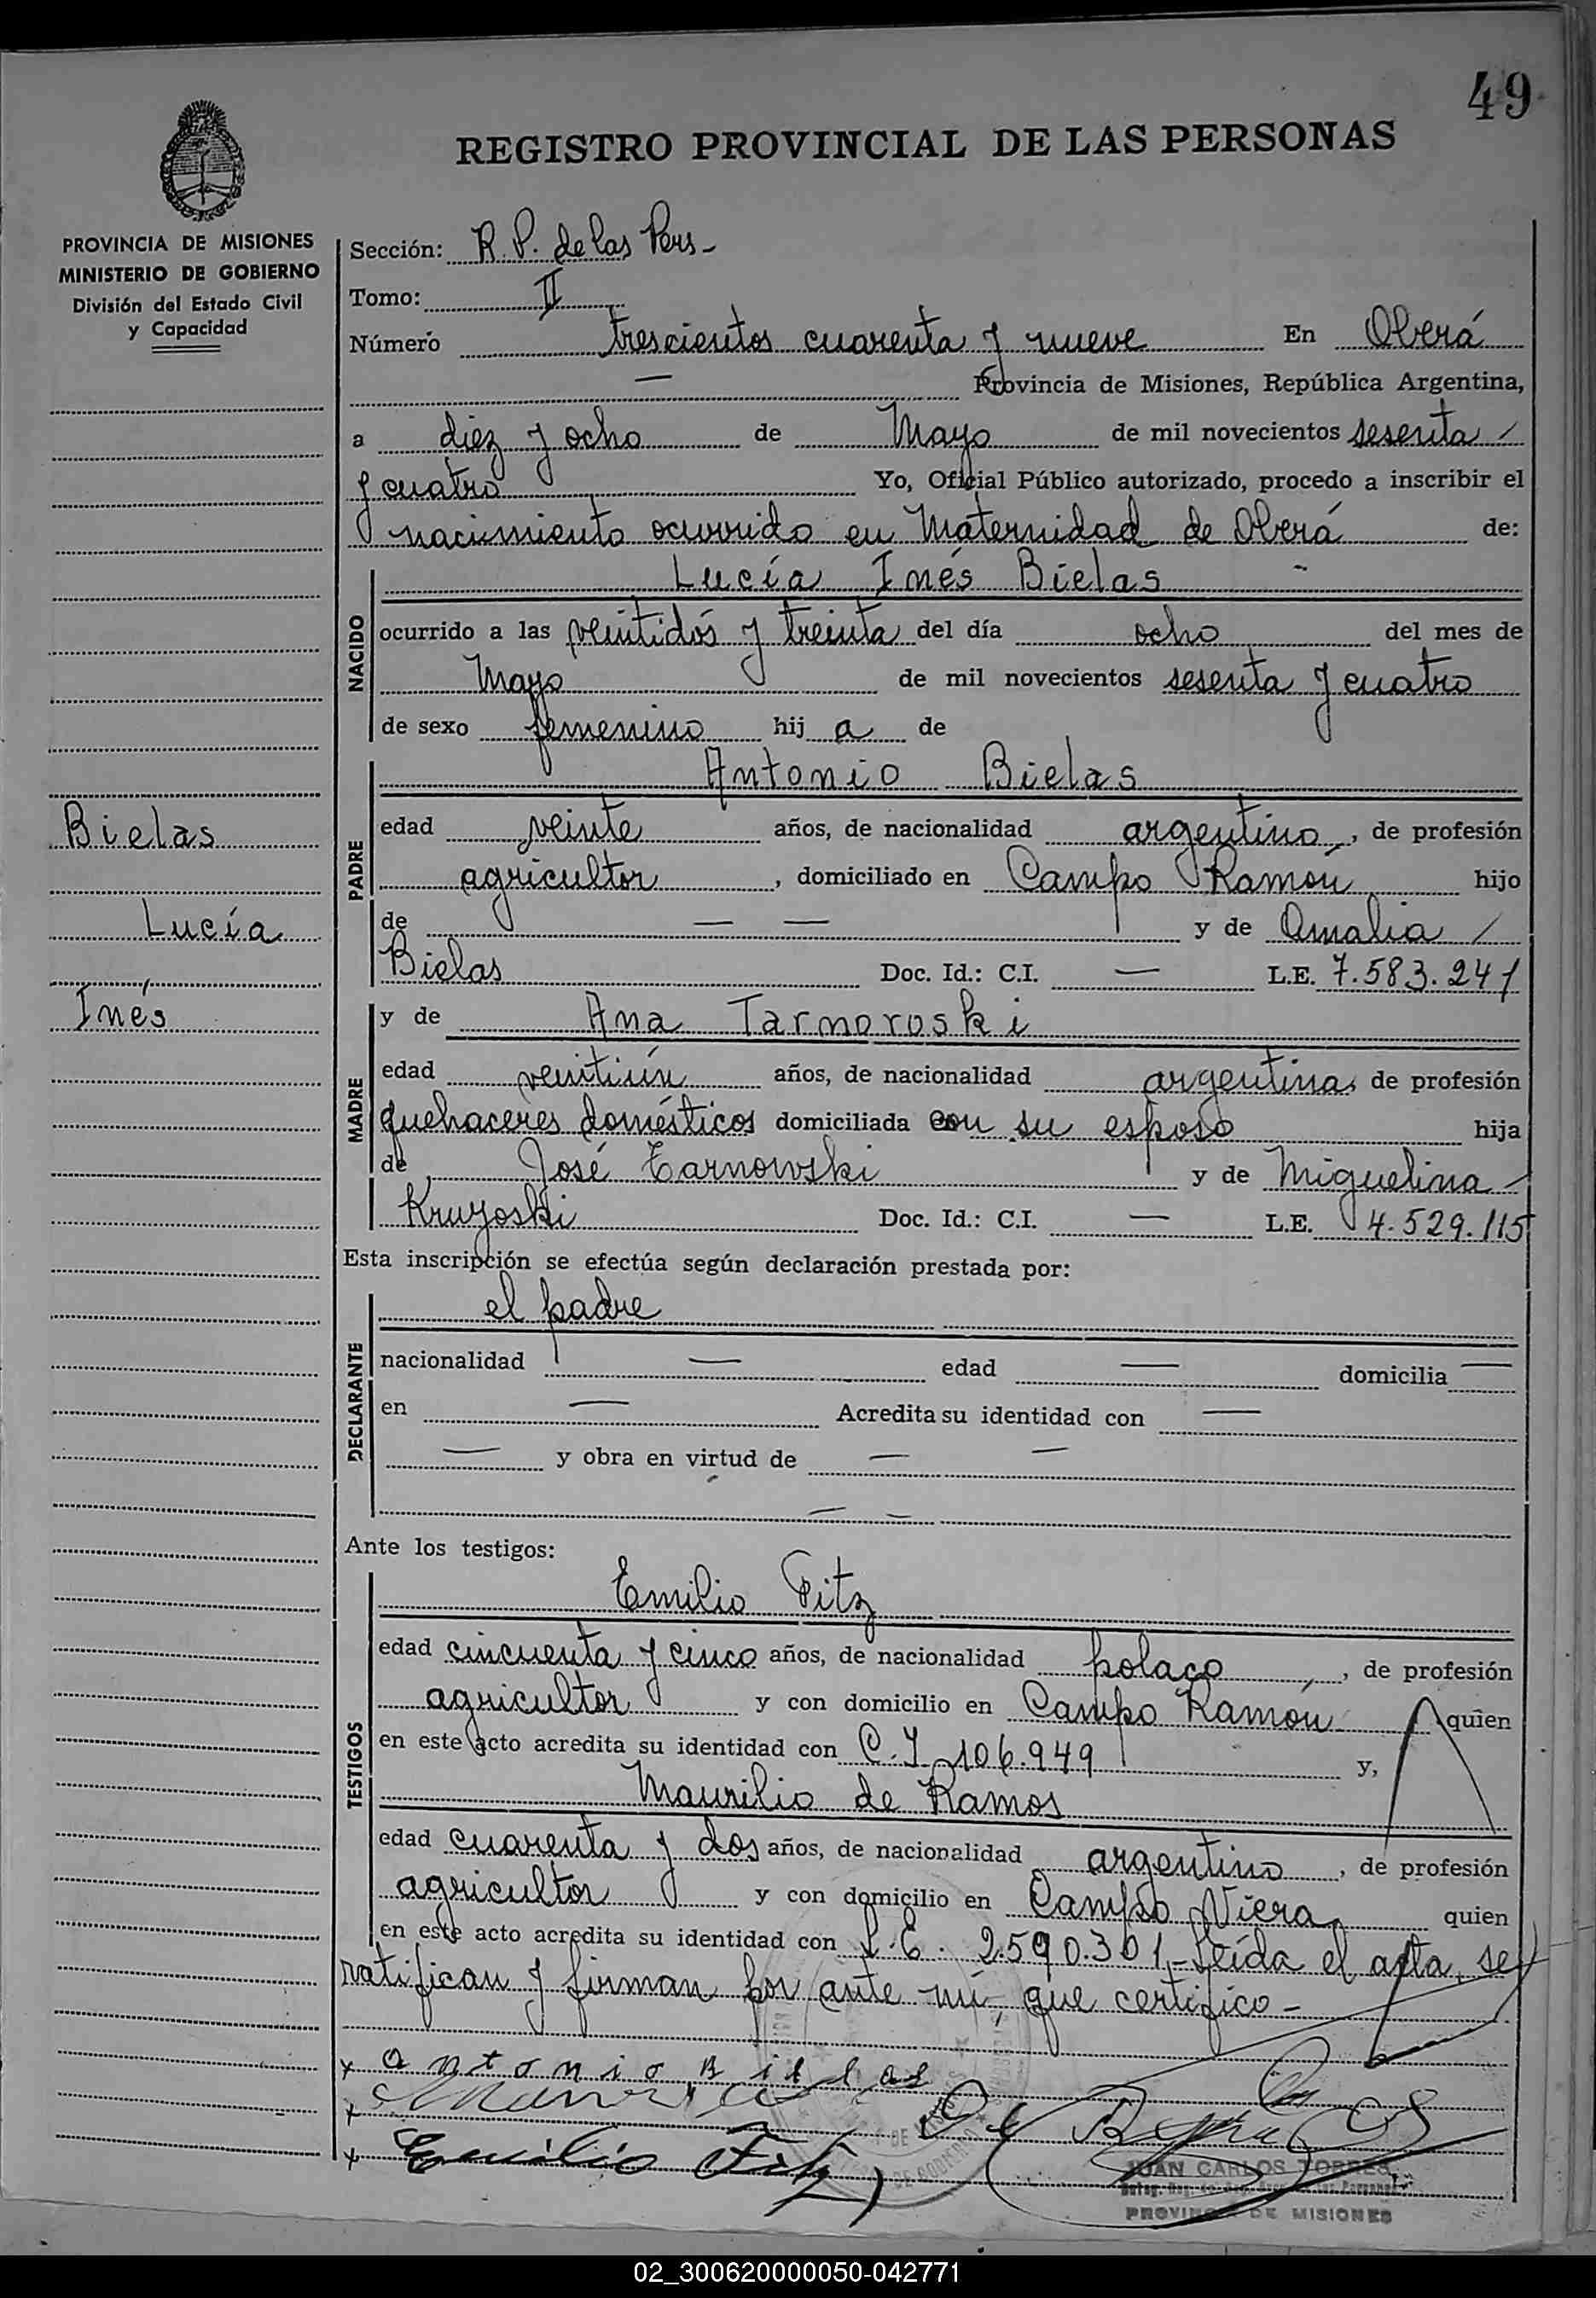 49
REGISTRO PROVINCIAL DE LAS PERSONAS
PROVINCIA DE MISIONES
MINISTERIO DE GOBIERNO
División del Estado Civil
y Capacidad
Sección: R. P. de las Pers-
Tomo: II
Número trescientos cuarenta y nueve En Oberá
— Provincia de Misiones, República Argentina,
a diez y ocho de Mayo de mil novecientos sesenta /
y cuatro Yo, Oficial Público autorizado, procedo a inscribir el
nacimiento ocurrido en Maternidad de Oberá de:
NACIDO
Lucía Inés Bielas -
ocurrido a las veintidós y treinta del día ocho del mes de
Mayo de mil novecientos sesenta y cuatro
de sexo femenino hij a de
PADRE
Antonio Bielas
Bielas
edad veinte años, de nacionalidad argentino, de profesión
agricultor, domiciliado en Campo Ramón hijo
Lucía
de — — y de Amalia /
Bielas Doc. Id.: C.I. — L.E. 7.583.241
Inés
MADRE
y de Ana Tarnoroski
edad veintiún años, de nacionalidad argentina, de profesión
quehaceres domésticos domiciliada con su esposo hija
de José Tarnowski y de Miguelina -
Kruyoski Doc. Id.: C.I. — L.E. 4.529.115
Esta inscripción se efectúa según declaración prestada por:
DECLARANTE
el padre
nacionalidad — edad — domicilia —
en — Acredita su identidad con —
— y obra en virtud de — —
— —
Ante los testigos:
TESTIGOS
Emilio Fitz
edad cincuenta y cinco años, de nacionalidad polaco, de profesión
agricultor y con domicilio en Campo Ramón quien
en este acto acredita su identidad con C.I 106.949 y,
Maurilio de Ramos
edad cuarenta y dos años, de nacionalidad argentino, de profesión
agricultor y con domicilio en Campo Viera quien
en este acto acredita su identidad con L.E. 2.590.301-Leída el acta, se
ratifican y firman por ante mí, que certifico-
x Antonio Bielas
x Maurilio De Ramos
x Emilio Fitz
JUAN CARLOS TORRES
PROVINCIA DE MISIONES
02_300620000050-042771